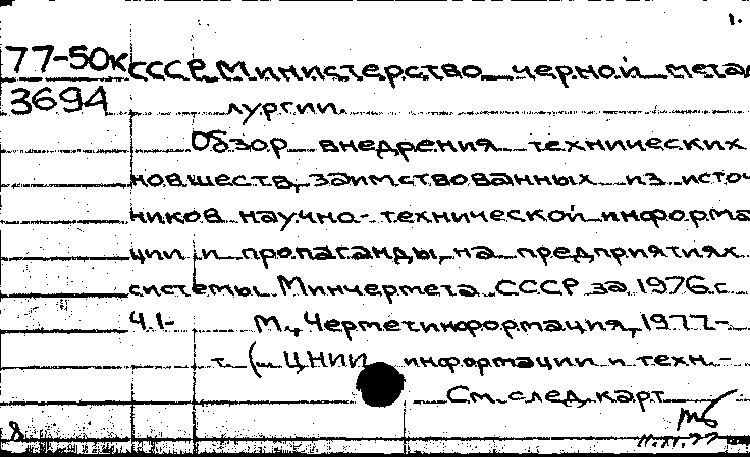 1.
77-50к СССР. Министерство черной метал
3694 лургии.
Обзор внедрения технических
новшеств, заимствованных из источ
ников научно-технической информа
ции и пропаганды, на предприятиях
системы Минчермета СССР за 1976 г.
Ч.1- М., Черметинформация, 1977-
т. (М ЦНИИ информации и техн.-
См. след. карт.
8